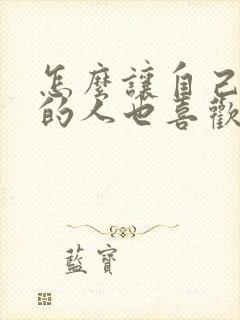 怎麼讓自己
的人也喜歡
藍寶